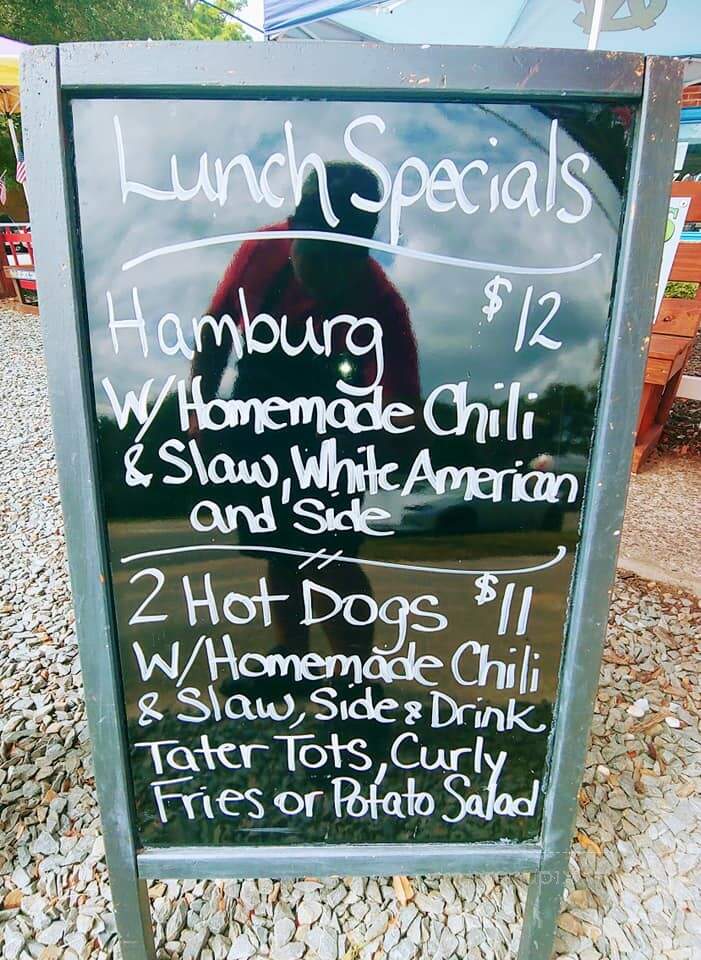 Lunch Specials
Hamburg $12
W/Homemade Chili
& Slaw, White American
and Side
2 Hot Dogs $11
W/Homemade Chili
& Slaw, Side & Drink
Tater Tots, Curly
Fries or Potato Salad